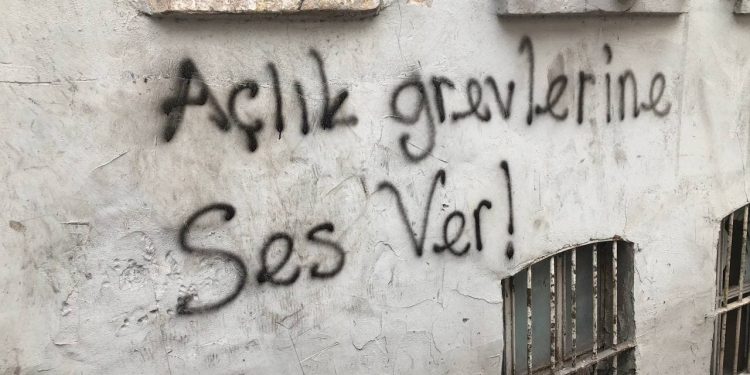 Açlık grevlerine
Ses Ver!